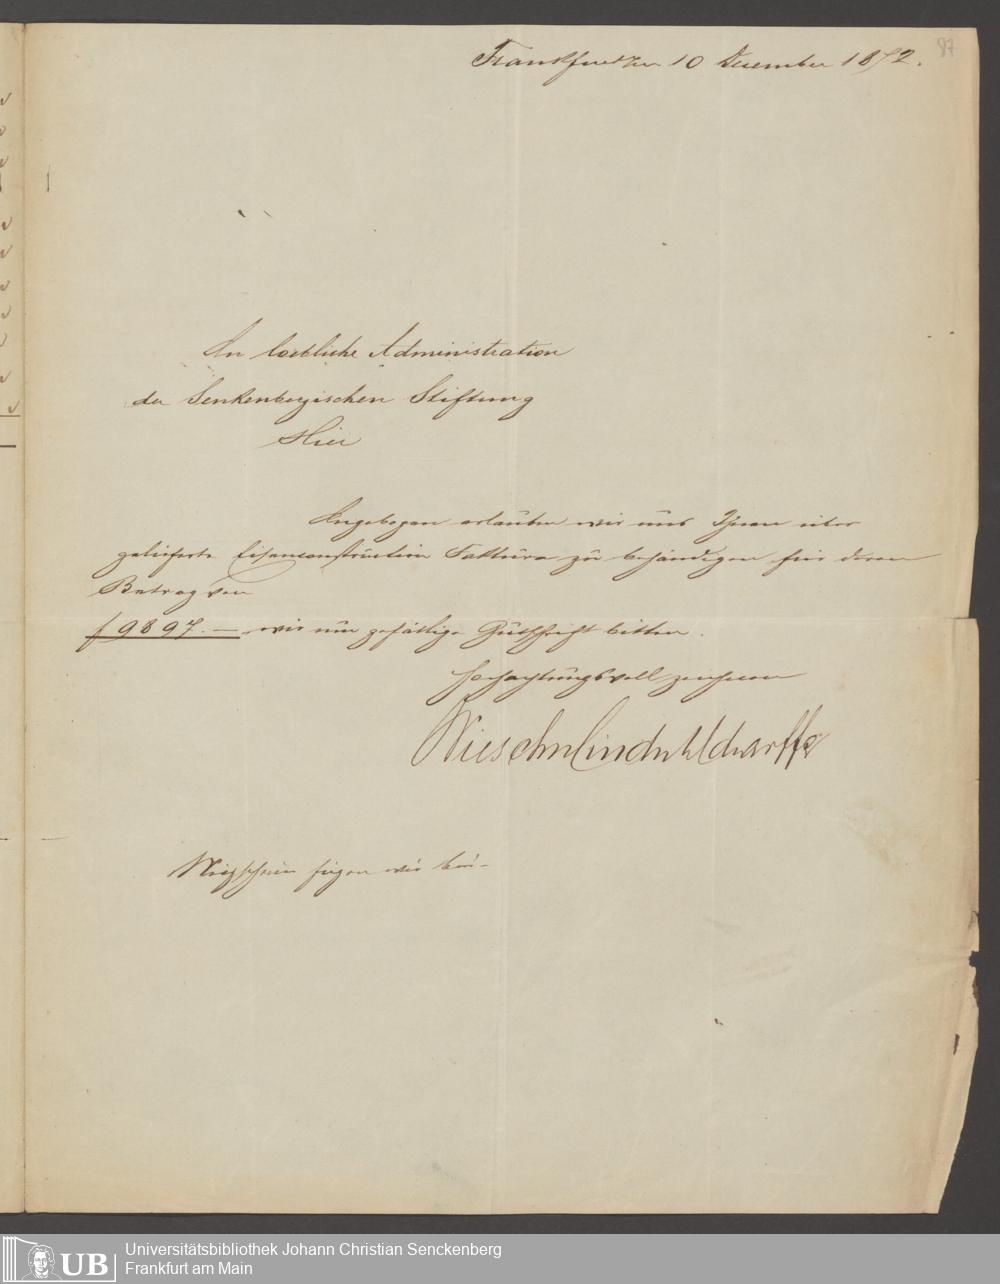 87
Frankfurt den 10 Dezember 1872.
An loebliche Administration
der Senkenbergischen Stiftung
Hier
Angebogen erlauben wir uns Ihnen über
gelieferte Eisenconstruction Faktura zu behändigen für deren
Betrag von
f 9897.— wir um gefällige Gutschrift bitten.
Hochachtungsvoll zeichnen
Wiegschein fügen wir bei-
Universitätsbibliothek Johann Christian Senckenberg
Frankfurt am Main
UB